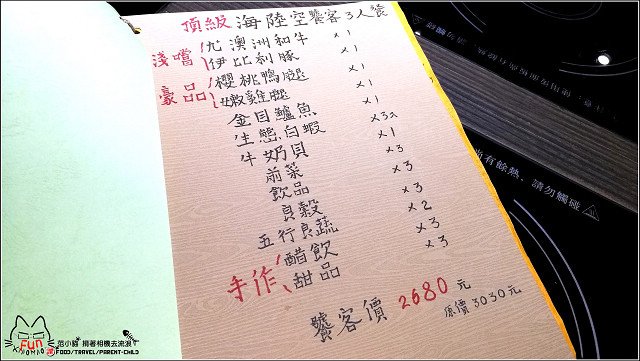 頂級海陸空饗客3人餐
淺嚐 九澳洲和牛 x1
伊比利豚 x1
豪品 櫻桃鴨腿 x1
嫩雞腿 x1
金目鱸魚 x1
生態白蝦 x3
牛奶貝 x1
前菜 x3
飲品 x3
貝穀 x3
五行良蔬 x2
手作 醋飲 x3
甜品 x3
饗客價 2680元 原價3030元
尚有餘熱，請勿觸碰
Fun
KAOMAO
范小貓 揹著相機去流浪
FOOD/TRAVEL/PARENT-CHILD